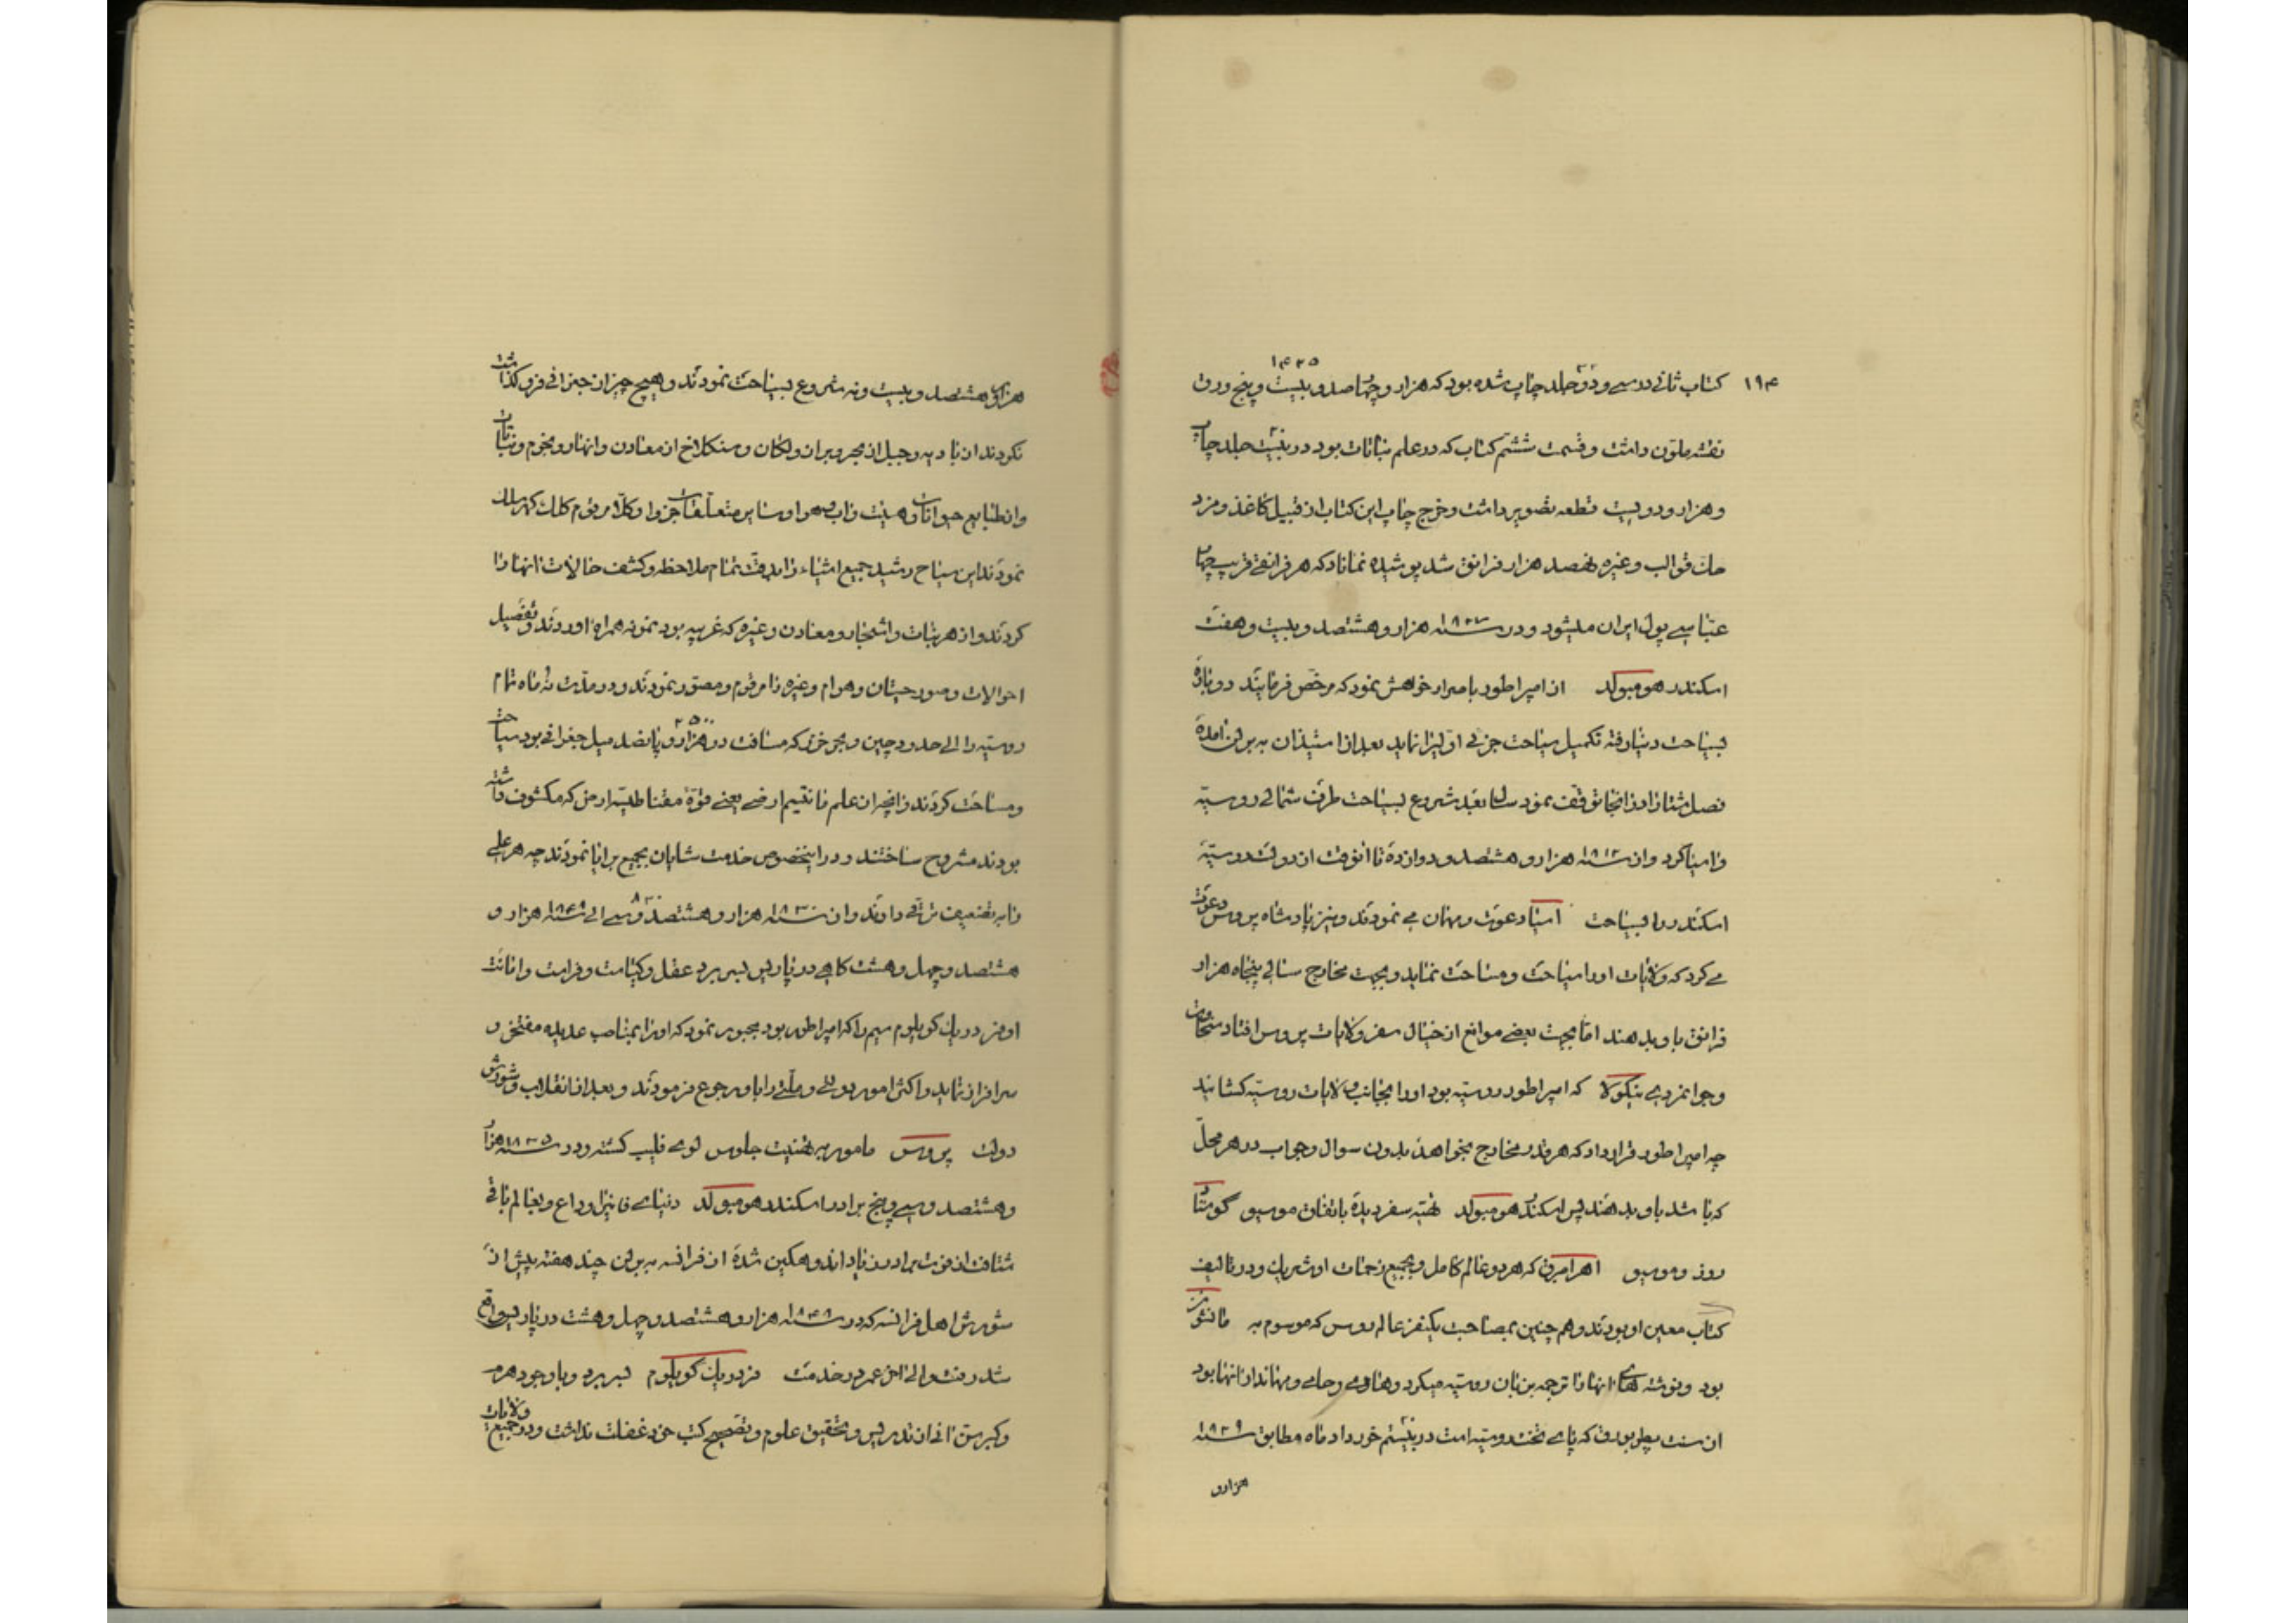 ۱۹۴
۱۴۲۵
کتاب ثانی در سی و دو جلد چاپ شده بود که هزار و چهار صد و بیست و پنج ورق
نقشه ملون داشت و قسمت ششم کتاب که در علم نباتات بود در بیست جلد چاپ
و هزار و دویست قطعه تصویر داشت و خرج چاپ این کتاب از قبیل کاغذ و مزد
حک قوالب و غیره هفصد هزار فرانق شد پوشیده نماناد که هر فرانقی قریب چهار
عباسی پول ایران میشود و در سنه ۱۸۲۷ هزار و هشتصد و بیست و هفت
اسکندر هومبولد از امپراطور باصرار خواهش نمود که مرخص فرمایند دوباره
بسیاحت دنیا رفته تکمیل سیاحت جزئی اولی را نماید بعد از استیذان به برلن آمده
فصل شتا را در انجا توقف نمود سال بعد شروع بسیاحت طرف شمالی روسیه
و اسیا کرد و از سنه ۱۸۱۲ هزار و هشتصد و دوازده تا انوقت از دولت روسیه
اسکندر را بسیاحت اسیا دعوت و مهمان می نمودند و نیز پادشاه پروس دعوت
می کرد که ولایات او را سیاحت و مساحت نماید و بجهت مخارج سالی پنجاه هزار
فرانق باو بدهند اما بجهت بعضی موانع از خیال سفر ولایات پروس افتاد سخاوت
و جوانمردی نیکولا که امپراطور روسیه بود او را بجانب ولایات روسیه کشانید
چه امپراطور قرار داد که هر قدر مخارج بخواهد بدون سوال و جواب در هر محل
که باشد باو بدهند پس اسکندر هومبولد تهیه سفر دیده باتفاق موسیو گوستا
روز و موسیو اهرامبرق که هر دو عالم کامل و بجمیع زحمات او شریک و در تالیف
کتاب معین او بودند و هم چنین بمصاحبت یکنفر عالم روس که موسوم به مانشو
بود و نوشته های انها را ترجمه بزبان روسیه میکرد و هادی و حامی و مهماندار انها بود
از سنت پطربورق که پای تخت روسیه است در بیستم خرداد ماه مطابق سنه ۱۸۲۹
هزار و
هزار و هشتصد و بیست و نه شروع بسیاحت نمودند و هیچ چیز از جزئی فرو گذاشت
نکردند از بادیه و جبل از بحر و بر ان و لکان و سنکلاخ از معادن و انهار و نجوم و نباتات
و از طبایع حیوانات و هیئت و اب و هوا و سایر متعلقات جزوا و کلا مرقوم کلک گهر سلک
نمودند این سیاح رشید جمیع اشیاء را بدقت تمام ملاحظه و کشف حالات انها را
کردند و از هر نبات و اشجار و معادن و غیره که غریبه بود نمونه همراه اوردند و تفصیل
احوالات و صور حیتان و هوام و غیره را مرقوم و مصور نمودند و در مدت نه ماه تمام
۲۵۰۰
روسیه را الی حدود چین و بحر خزر که مسافت دو هزار و پانصد میل جغرافی بود سیاحت
و مساحت کردند و انچه از علم مانتیسم ارضی یعنی قوه مقناطیسیه ارض که مکشوف داشته
بودند مشروح ساختند و در اینخصوص خدمت شایان بجمیع برایا نمودند چه هر علمی
را به تضعیف ترقی دادند و از سنه ۱۸۳۰ هزار و هشتصد و سی الی سنه ۱۸۴۸ هزار و
هشتصد و چهل و هشت گاهی در پاریس بسر برد عقل و کیاست و فراست و امانت
او فردریک گویلوم سیم را که امپراطور بود مجبور نمود که او را بمناصب عدیده مفتخر و
سرافراز نماید و اکثر امور دولتی و ملتی را باو رجوع فرمودند و بعد از انقلاب و شورش
دولت پروس مامور به تهنیت جلوس لوی فلیپ گشته و در سنه ۱۸۳۵ هزار
و هشتصد و سی و پنج برادر اسکندر هومبولد دنیای فانی را وداع و بعالم باقی
شتافت از فوت برادر زیاد اندوهگین شده از فرانسه به برلن چند هفته پیش از
شورش اهل فرانسه که در سنه ۱۸۴۸ هزار و هشتصد و چهل و هشت در پاریس واقع
شد رفت و الی اخر عمر در خدمت فردریک گویلوم بسر برد و با وجود هرم
و کبر سن انی از تدریس و تحقیق علوم و تصحیح کتب خود غفلت نداشت و در جمیع ولایات